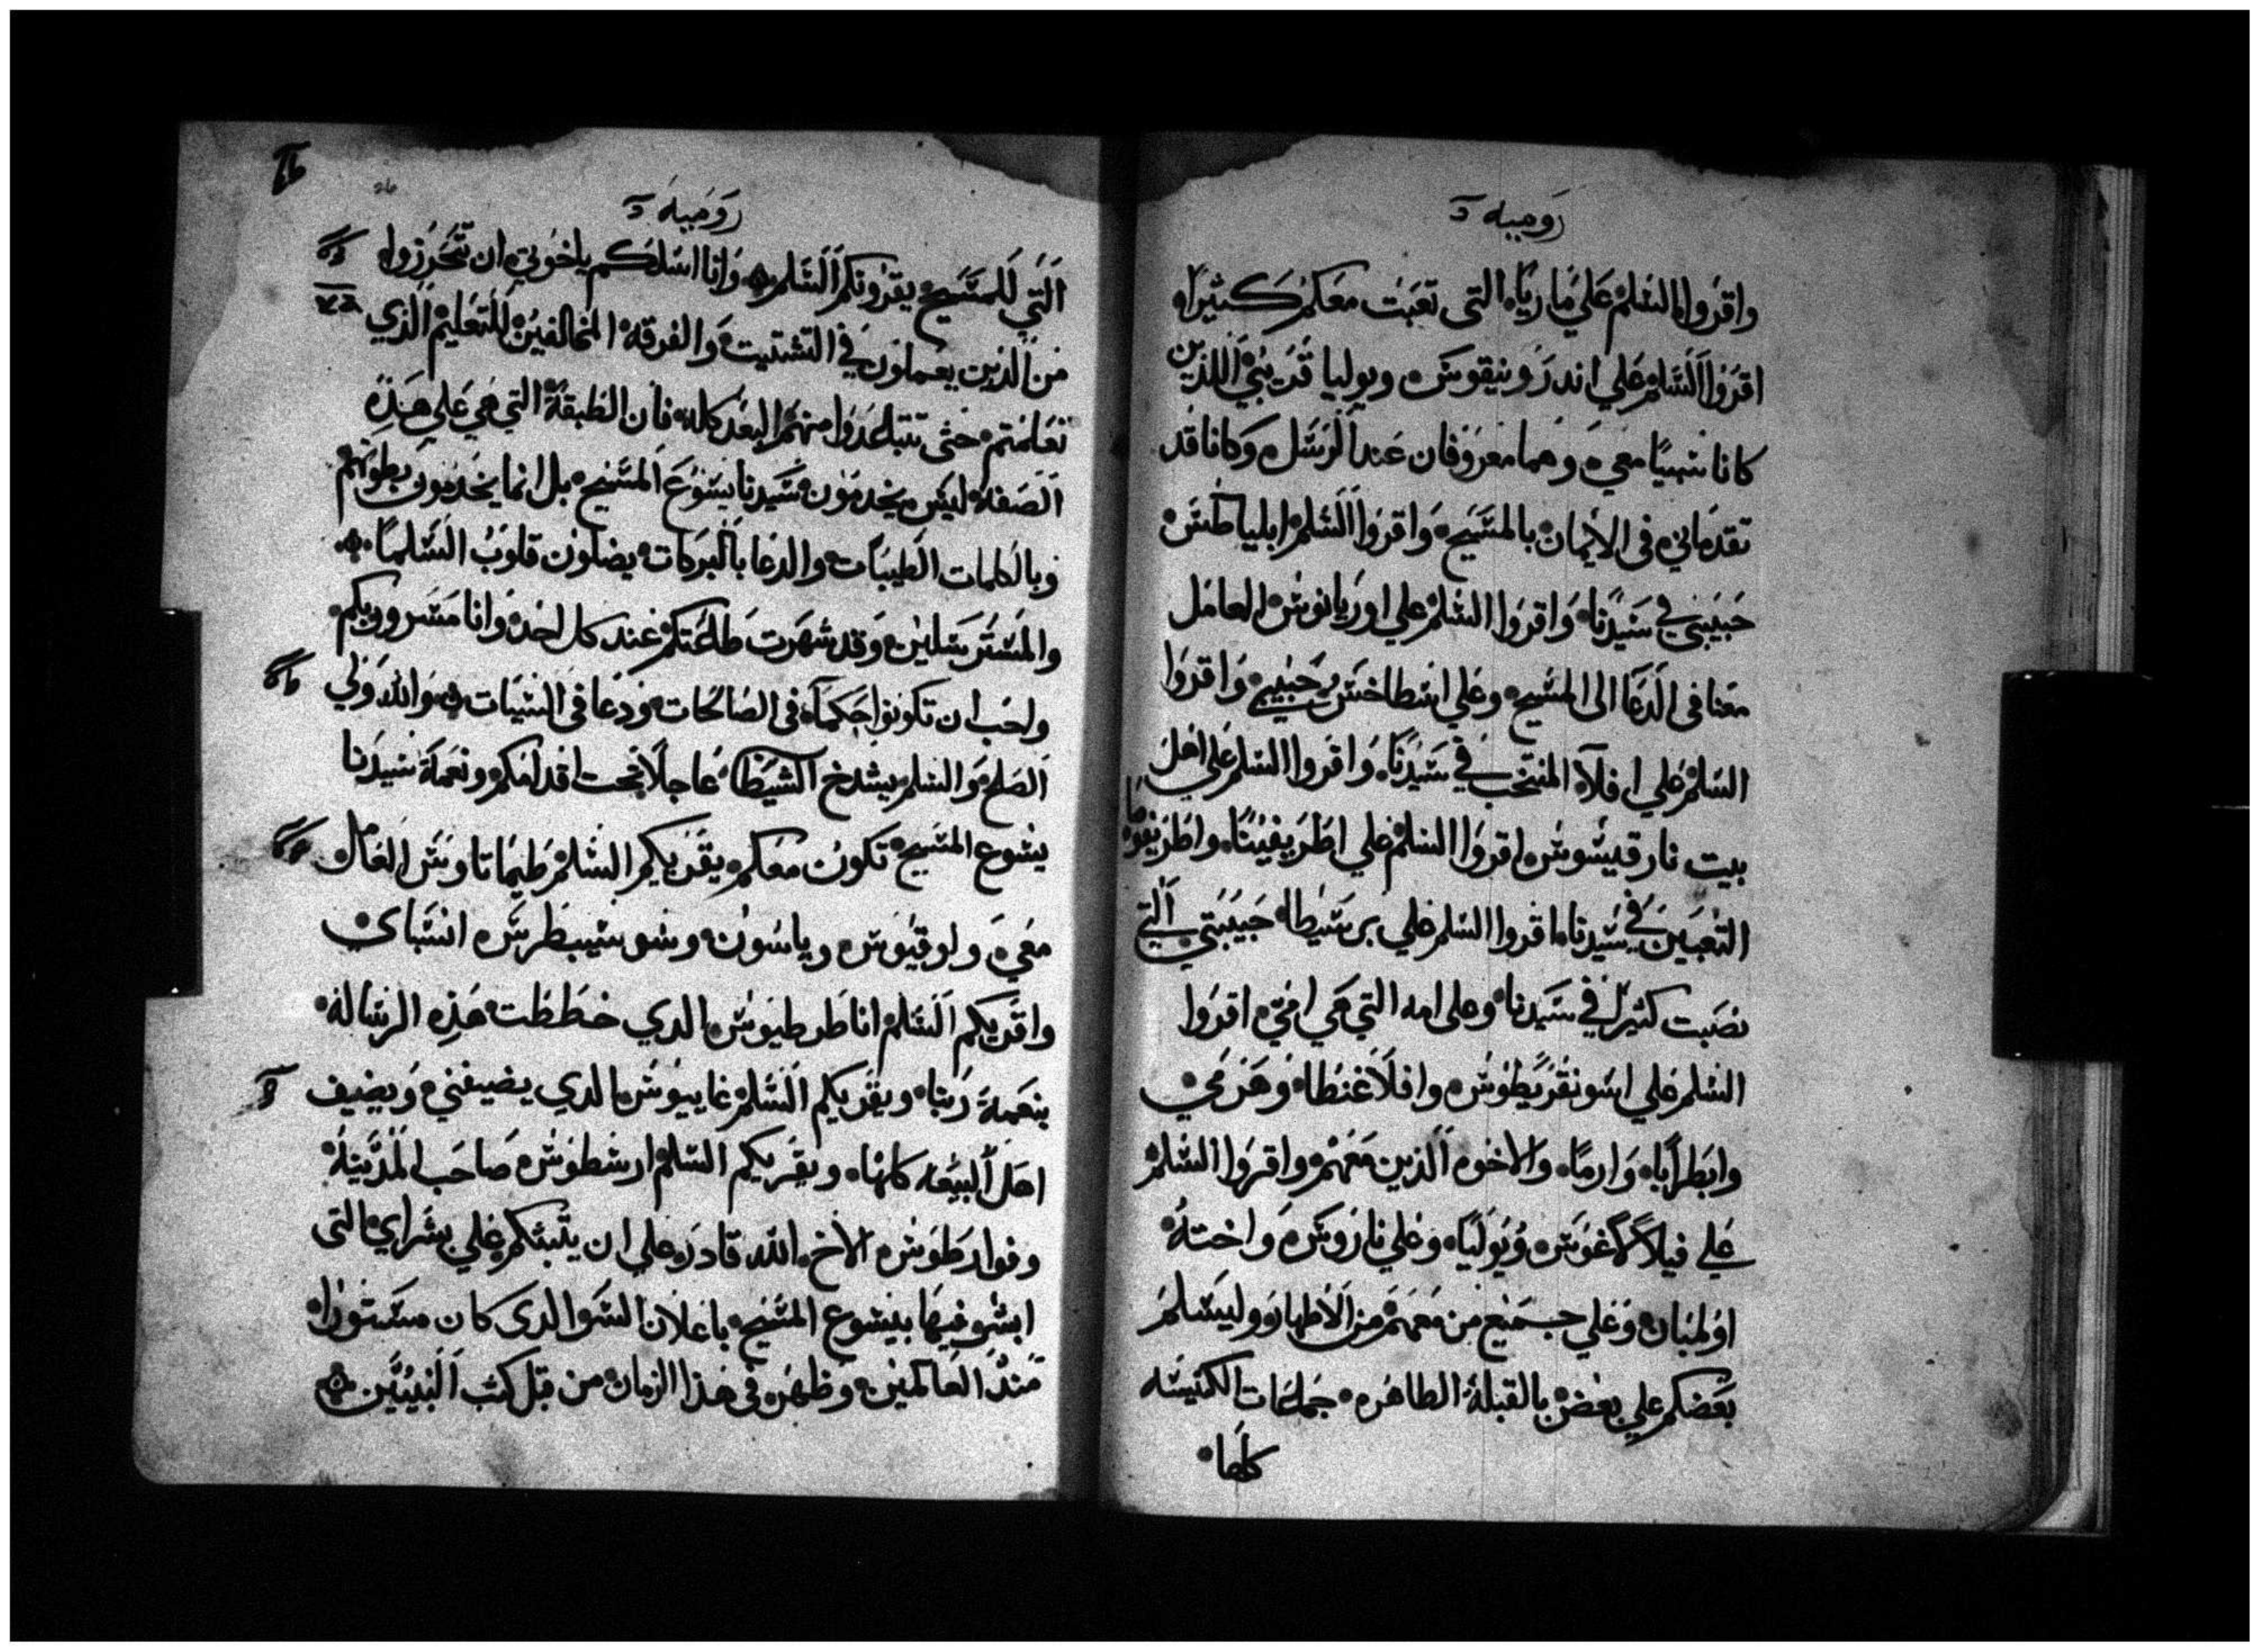 رومييه
واقروا السلم علي ماريا التى تعبت معكم كثيرا
اقروا السلم علي اندرونيقوس ويوليا قريبي اللذين
كانا سبيا معي وهما معروفان عند الرسل وكانا قد
تقدماني فى الايمان بالمسيح واقروا السلم ابلياطس
حبيبي في سيدنا واقروا السلم علي اوريانوس العامل
معنا فى الدعا الى المسيح وعلي اسطاخس حبيبي واقروا
السلم علي افلا المنتخب في سيدنا واقروا السلم علي اهل
بيت نارقيسوس اقروا السلم علي اطريفينا واطريفوسا
التعبين في سيدنا اقروا السلم علي برسيطا حبيبتي التي
نصبت كثيرا في سيدنا وعلى امه التي هي امي اقروا
السلم علي اسونقريطوس وافلاغنطا وهرمي
وابطرابا وارما والاخوه الذين معهم واقروا السلم
علي فيلالاغوس ويوليا وعلي ناروس واخته
اولمبان وعلي جميع من معهم من الاطهار وليسلم
بعضكم علي بعض بالقبلة الطاهره جماعات الكنيسه
كلها
رومييه
التي للمسيح يقرونكم السلم وانا اسلكم ياخوتي ان تحرزوا
من الذين يعملون في التشتيت والفرقه المخالفين للتعليم الذي
تعلمتم حتى تتباعدوا منهم البعد كله فان الطبقة التي هي علي هذه
الصفة ليس يخدمون سيدنا يسوع المسيح بل انما يخدمون بطونهم
وبالكلمات الطيبات والدعا بالبركات يضلون قلوب السلما
والمسترسلين وقد شهرت طاعتكم عند كل احد وانا مسرور بكم
واحب ان تكونوا حكما فى الصالحات ودعا فى السيات والله ولي
الصلح والسلم يشدخ الشيطا عاجلا تحت اقدامكم ونعمة سيدنا
يسوع المسيح تكون معكم يقريكم السلم طيماتاوس العامل
معي ولوقيوس وياسون وسوسيبطرس انسباي
واقريكم السلم انا طرطيوس الدي خططت هذه الرسالة
بنعمة ربنا ويقريكم السلم غاييوس الدي يضيفني ويضيف
اهل البيعه كلها ويقريكم السلم ارسطوس صاحب المدينة
وفوارطوس الاخ الله قادر علي ان يثبتكم علي بشراي التى
ابشر فيها بيسوع المسيح باعلان السر الدى كان مستورا
مند العالمين وظهر في هذا الزمان من قبل كتب النبيين